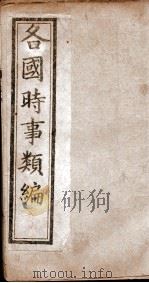 各國時事類編
www.mtoou.info